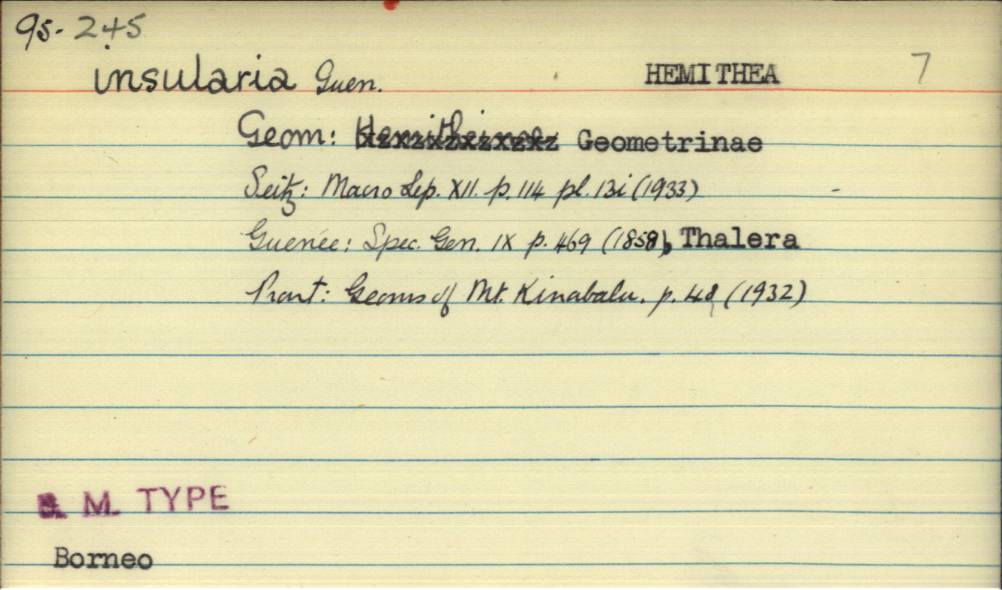 95-245
insularia Guen. HEMITHEA 7
Geom: Hemitheinae Geometrinae
Seitz: Macro Lep. XII. p. 114 pl. 13i (1933) -
Guenée: Spec. Gen. IX p. 469 (1858), Thalera
Prout: Geoms of Mt. Kinabalu. p. 48 (1932)
B. M. TYPE
Borneo